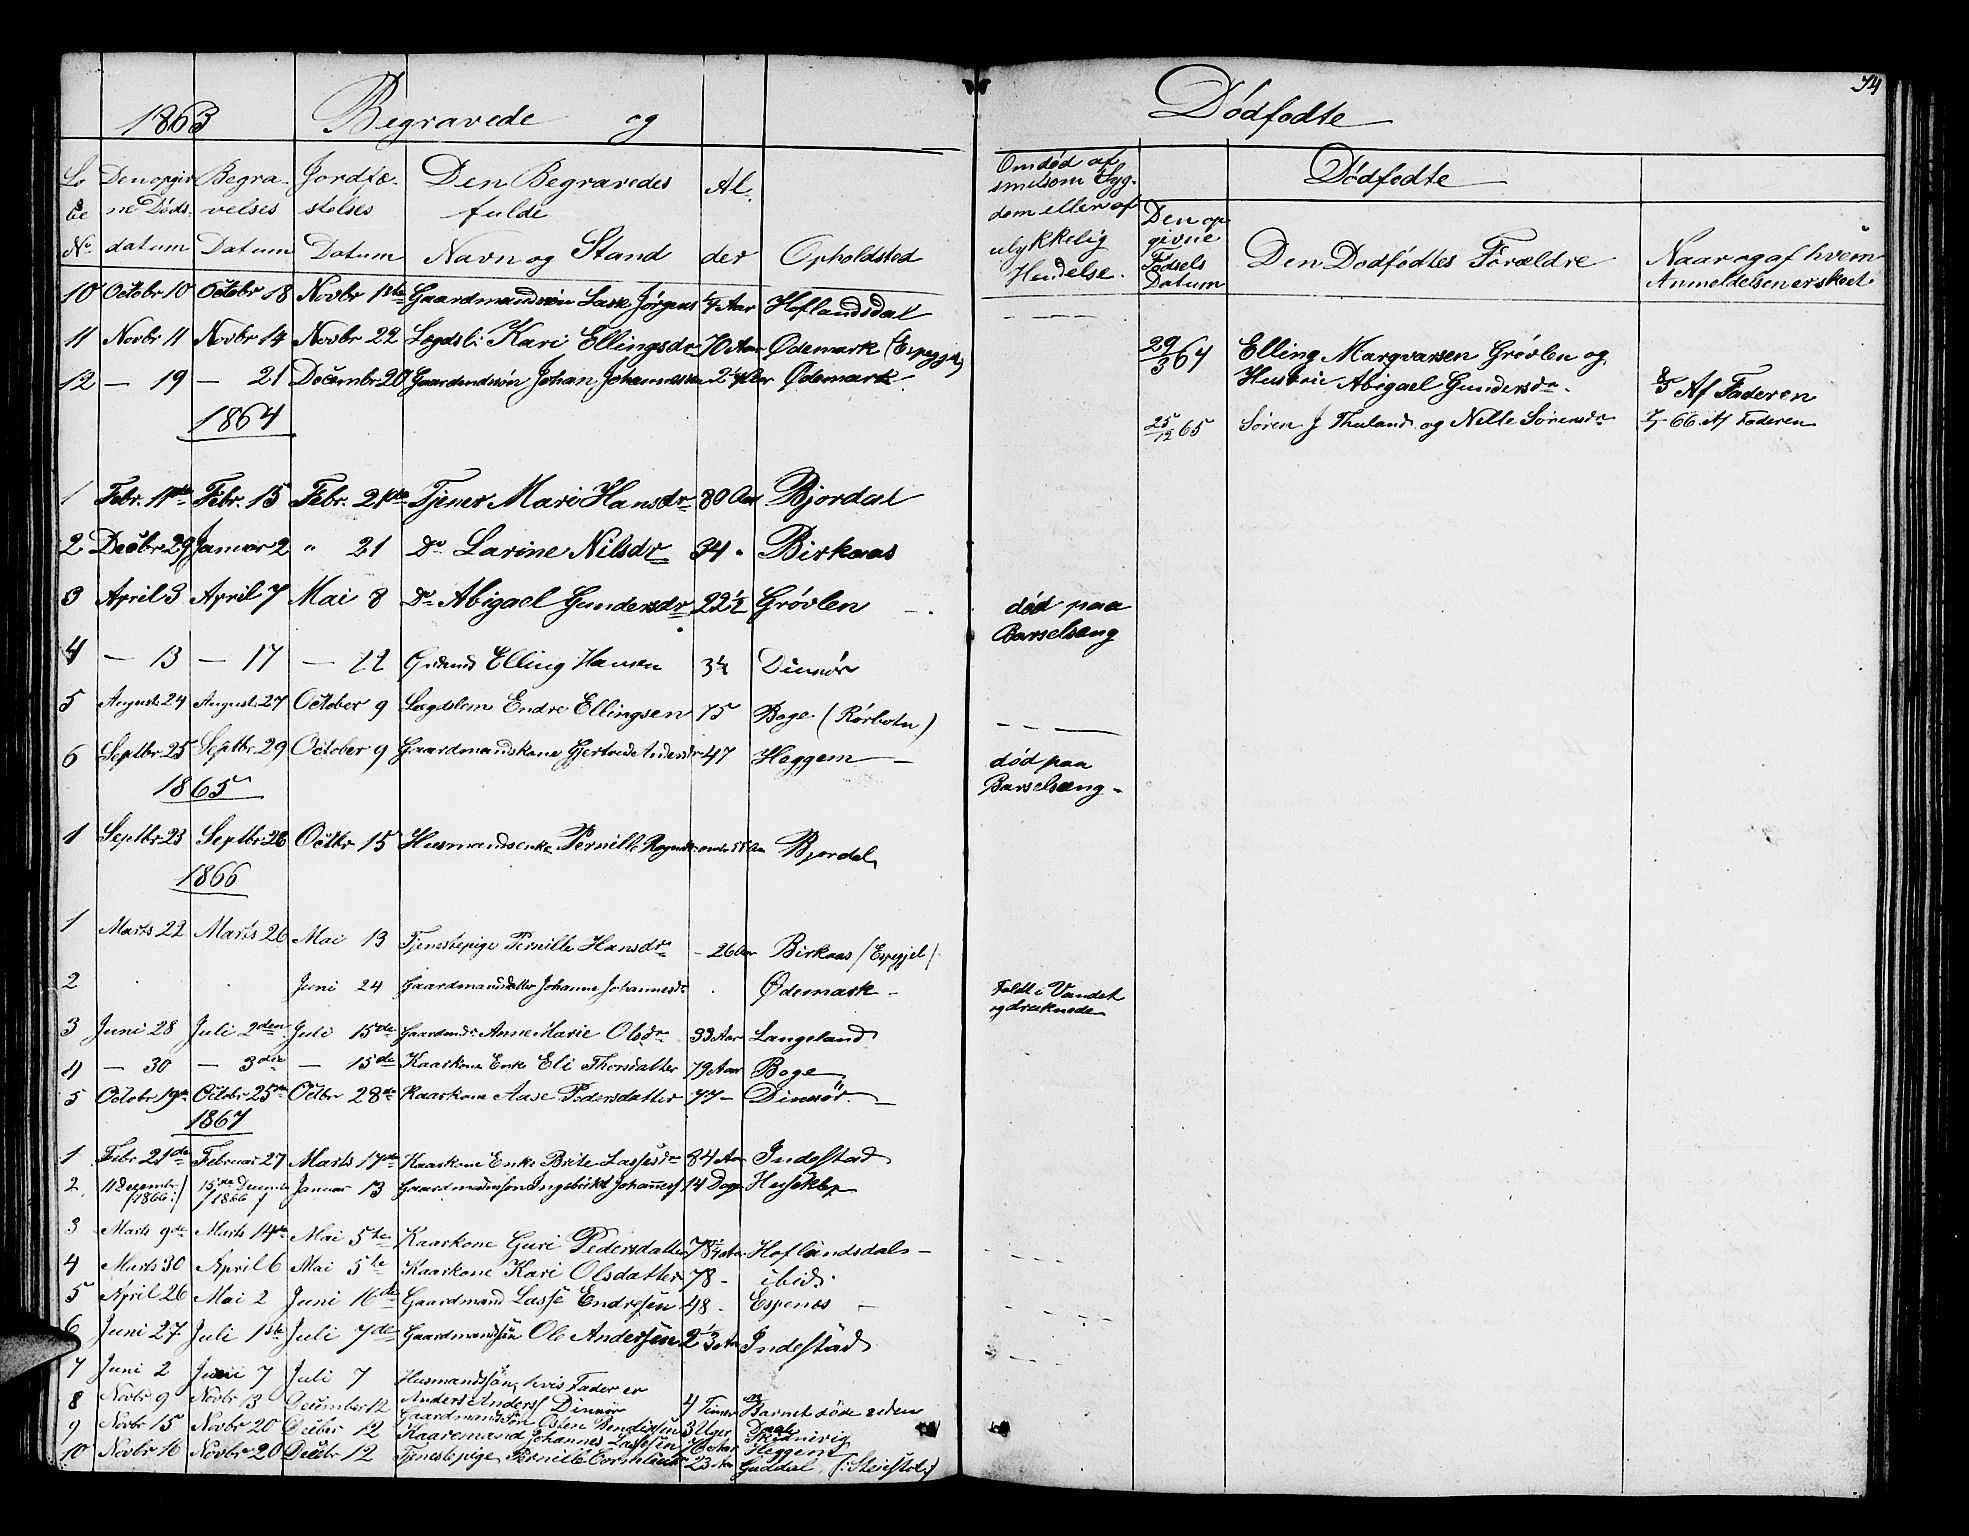 1863 Begravede og
Lø Den opgiv Begra- Jordfæ- Den Begravedes Al.
be ne Døds- velses stelses fulde
No datum Datum Datum Navn og Stand der Opholdsted
10 Octobr 10 Octobr 18 Novbr 1ste Gaardmandssøn Lasse Jørgens 4 Aar Hoflandsdal
11 Novbr 11 Novbr 14 Novbr 22 Lægdsl: Kari Ellingsdr 70 Aar Ødemark (Espegjel)
12 — 19 — 21 Decembr 20 Gaardmdssøn Johan Johannessen 2 Aar Ødemark
1864
1 Febr. 11te Febr. 15 Febr. 21de Tjener Mari Hansdr 80 Aar Bjordal
2 Decbr 29 Januar 2 " 21 Do Larine Nilsdr 34 " Birkaas
3 April 3 April 7 Mai 8 Do Abigael Gundersdr 22½ Grøvlen
4 — 13 — 17 — 22 Elling Hansen 3¼ Dimnør
5 August 24 August 27 October 9 Lægdslem Endre Ellingsen 75 Boge (Rørbotn)
6 Septbr 25 Septbr. 29 October 9 Gaardmandskone Gjertrude Andersdr 47 Heggem
1865
1 Septbr 23 Septbr 26 Octbr 15 Husmandsenke Pernille 55 Aar Bjordal
1866
1 Marts 22 Marts 26 Mai 13 Tjenestepige Pernille Hansdr - 26 Aar Birkaas (Espegjel)
2 Juni 24 Gaardmandsdatter Johanne Johannesdr Ødemark
3 Juni 28 Juli 2den Juli 15de Anne Marie Olsdr 33 Aar Langeland
4 — 30 — 3die — 15de Kaarkone Enke Eli Thorsdatter 79 Aar Boge
5 Octobr 19de Octobr 25de Octbr 28de Kaarkone Aase Pedersdatter 77 — Dimnør
1867
1 Febr 21de Februar 27 Marts 17de Kaarkone Enke Brite Lassesdr 84 Aar Indestad
2. 11 Decembr (1866) 15de Decembr (1866) Januar 13 Gaardmandssøn Ingebrikt Johannes 14 Dage
3 Marts 9de Marts 14de Mai 5te Kaarkone Guri Pedersdatter 78½ Aar Hoflandsdal
4 Marts 30 April 6 Mai 5te Kaarkone Kari Olsdatter 78 - ibid.
5 April 26 Mai 2 Juni 16de Gaardmand Lasse Endresen 48 - Espenes
6 Juni 27 Juli 1ste Juli 7de Gaardmandssøn Ole Andersen Indestad
7 Juni 2 Juni 7 Juli 7 Husmandssøn, hvis Fader er
Anders Anders Dimnør 4 Timer Barnet døde uden
8 Novbr 9 Novbr 13 December 12 Gaardmandssøn Østen Bendixsen 3 Uger Daabe
9 Novbr 15 Novbr 20 Decber 12 Kaaremand Johannes Lassesen 76 Aar Heggem
10 Novbr 16 Novbr 20 Decbr 12 Tjenestepige Pernille 23 Aar Guddal
Dødfødte 74
Om død af
smitsom Syg-
dom eller af
ulykkelig
Hendelse.
Dødfødte
Den op
givne
Fødsels
Datum Den Dødfødtes Forældre Naar og af hvem
Anmeldelsen er skeet
29/3 64 Elling Marqvarsen Grøvlen og
Hustrue Abigael Gundersdr. 8/5 Af Faderen
25/12 65 Søren J Thuland og Nille Sørensdr 66 Af Faderen
død paa
Barselseng
død paa
Barselseng.
Faldt i Vandet
og druknede